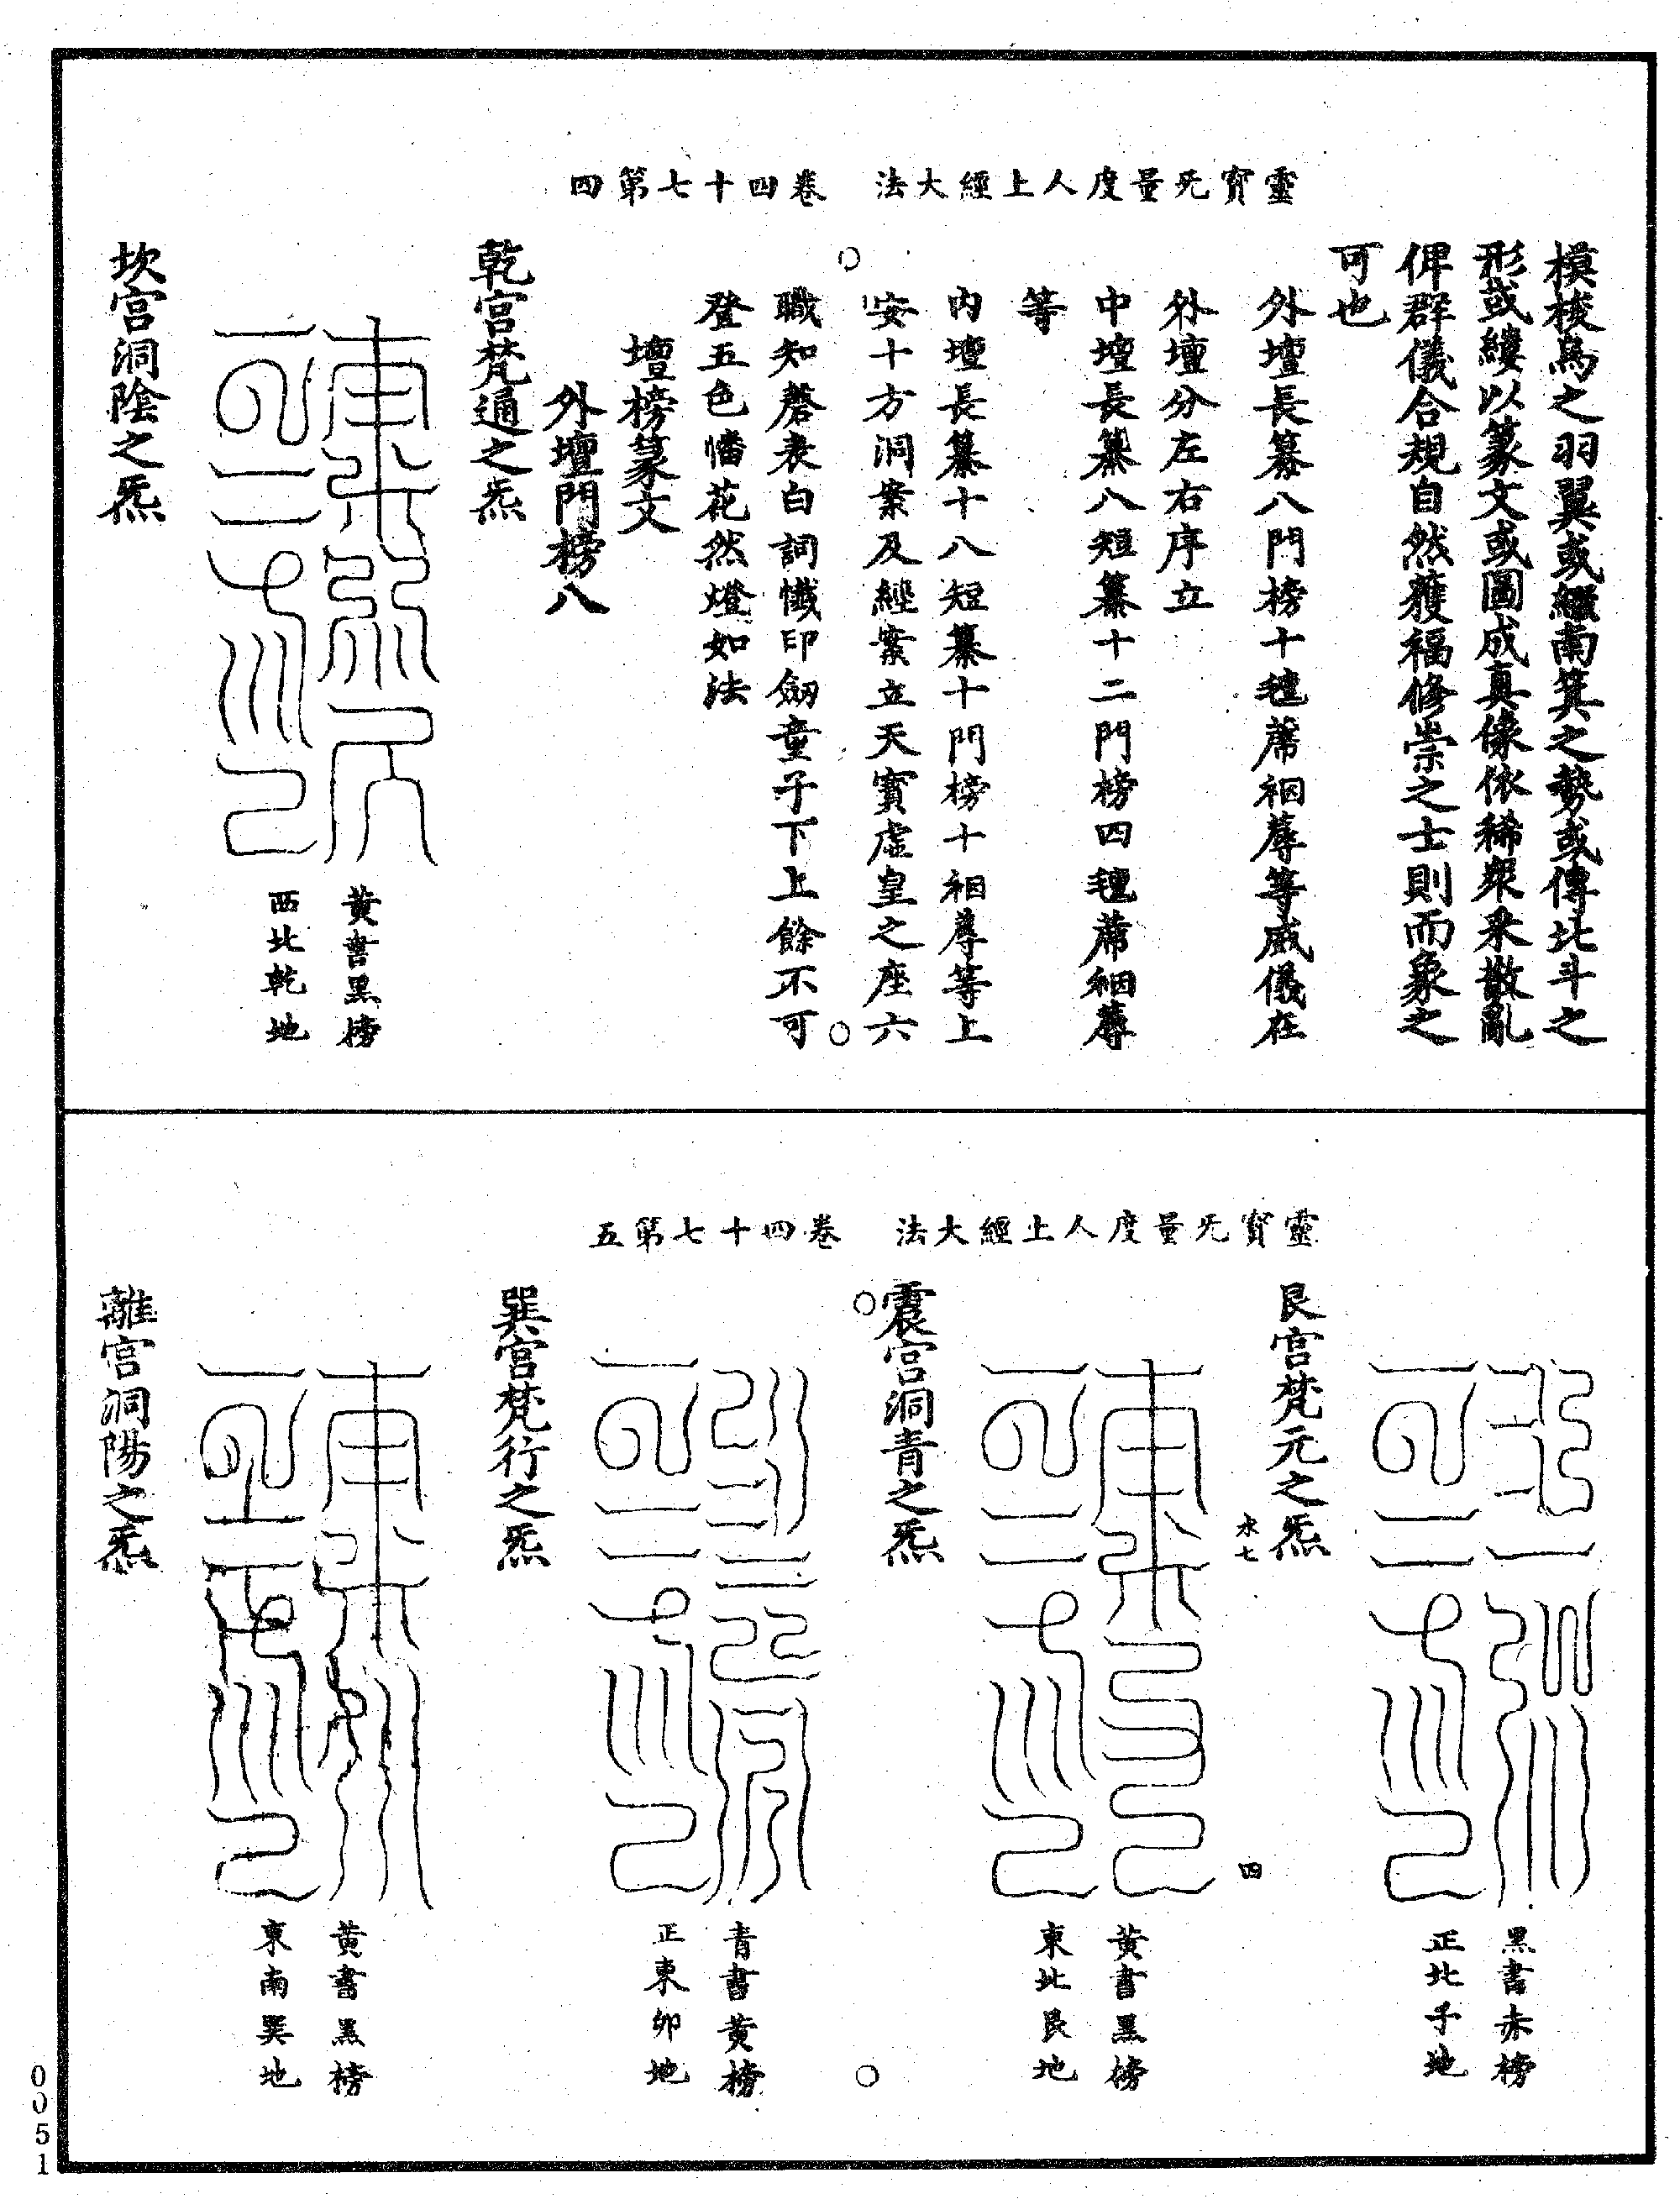 靈寶旡量度人上經大法　卷四十七第四
模梭鳥之羽翼或繼南箕之勢或傳北斗之
形或縷以篆文或圖成真像依稀眾釆散亂
俾群儀合規自然蒦福修崇之士則而象之
可也
外壇長纂八門榜十氊蓆裀蓐等威儀在
外壇分左右序立
中壇長纂八短纂十二門榜四氊蓆裀蓐
等
內壇長纂十八短纂十門榜十裀蓐等上
安十方洞案及經案立天寶虛皇之座六
職知磬表白詞懺印劒童子下上餘不可
登五色幡花然燈如法
壇榜篆文
外壇門榜八
乾宮梵通之炁
黃書黑榜
西北乾地
坎宮洞陰之炁
靈寶旡量度人上經大法　卷四十七第五
黑書赤榜
正北子地
艮宮梵元之炁
水七
四
黃書黑榜
東北艮地
震宮洞青之炁
青書黃榜
正東卯地
巽宮梵行之炁
黃書黑榜
東南巽地
離宮洞陽之炁
0051